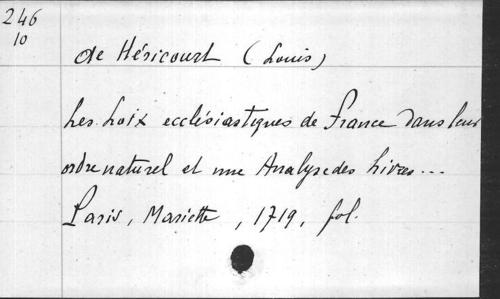 246
10
de Héricourt (Louis)
Les Loix ecclésiastiques de France dans leur
ordre naturel et une Analyse des Livres...
Paris, Mariette, 1719, fol.